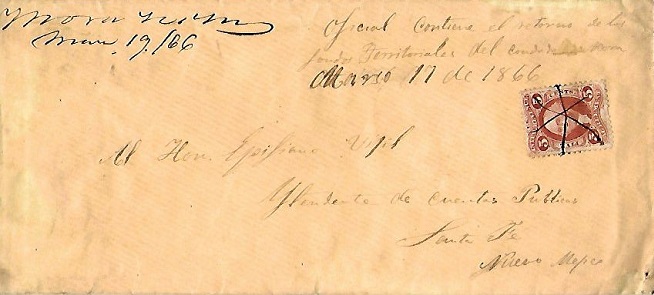 Mora N.M.
Mar. 19/66
Oficial Contiene el retorno de los
fondos Territoriales del condado de Mora
Marso 17 de 1866
5 CENTS 5
5 5
Al Hon. Epifanio Vigil
de cuentas Publicas
Santa Fé
Nuevo Mejico